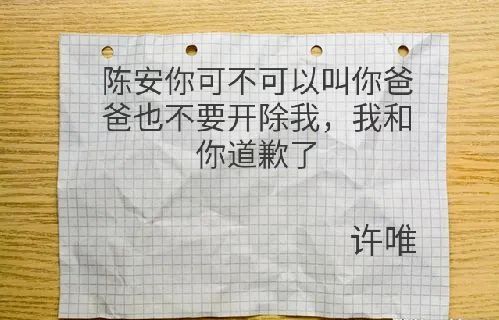 陈安你可不可以叫你爸
爸也不要开除我，我和
你道歉了
许唯